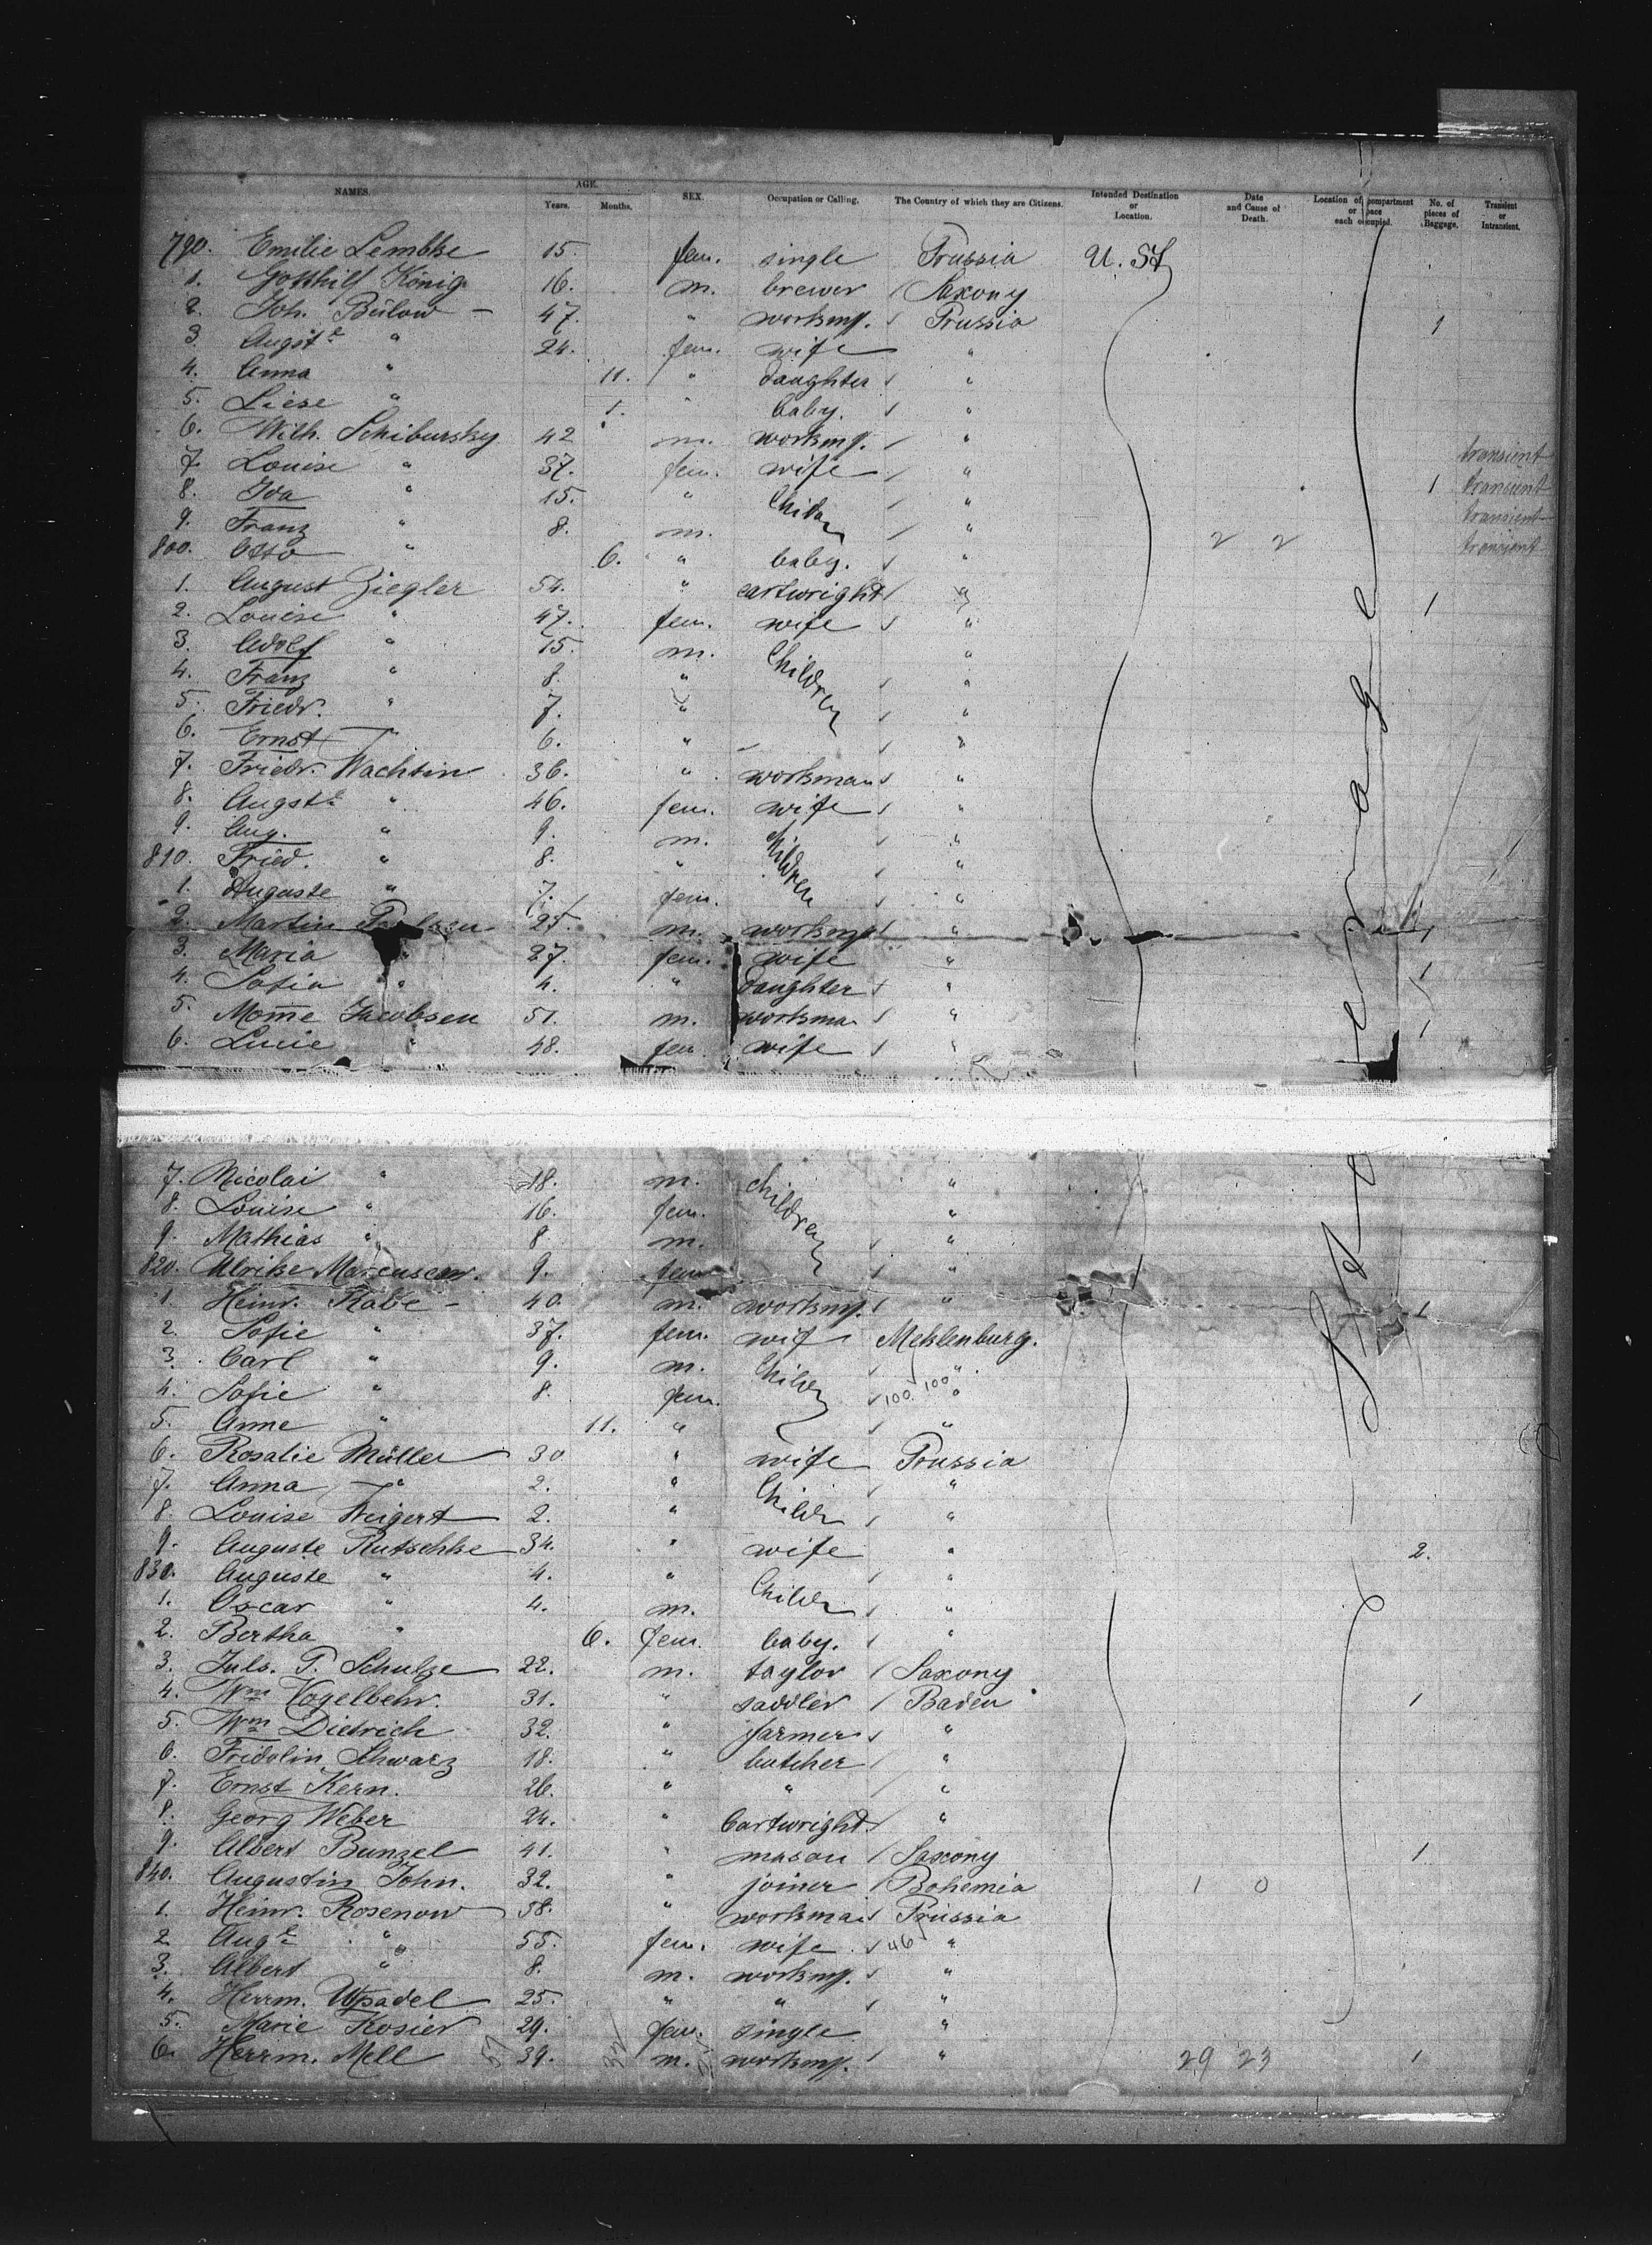 NAMES. AGE. Years. Months. SEX. Occupation or Calling. The Country of which they are Citizens. Intended Destination or Location. Date and Cause of Death. Location of compartment or space each occupied. No. of pieces of Baggage. Transient or Intransient.
790. Emilie Lembke 15. fem. single Prussia U. St
1. Gotthilf König 16. m. brewer Saxony
2. Joh. Bülow - 47. " worksm. Prussia 1
3. Augste " 24. fem. wife "
4. Anna " 11. " daughter "
5. Liese " 1. " baby. "
6. Wilh. Schibursky 42 m. worksm. " transient
7. Louise " 37. fem. wife " 1 transient
8. Ida " 15. " Childr "  transient
9. Franz " 8. m. " 2 2 transient
800. Otto " 6. " baby. "
1. August Ziegler 54. " cartwright " 1
2. Louise " 47. fem. wife "
3. Adolf " 15. m. Children "
4. Franz " 8. " "
5. Friedr. " 7. " "
6. Ernst " 6. " "
7. Friedr. Wachtin 36. " worksman "
8. Augste " 46. fem. wife "
9. Aug. " 9. m. children "
810. Fried. " 8. " "
1. Auguste " 7. fem. "
2. Martin 27. m. worksm " 1
3. Maria " 27. fem. wife "
4. Sofia " 4. " daughter " 1
5. Mom̅e Jacobsen 51. m. worksma " 1
6. Lucie " 48. fem. wife "
7. Nicolai " 18. m. children "
8. Louise " 16. fem. "
9. Mathias " 8. m. "
820. Ulrike Marcussen. 9. fem "
1. Heinr. Rabe - 40. m. worksm. " 1
2. Sofie " 37. fem. wif Meklenburg.
3. Carl " 9. m. Childr "
4. Sofie " 8. fem. 100 100 "
5. Anne " 11. " "
6. Rosalie Müller 30 " wife Prussia
7. Anna " 2. " Childr "
8. Louise Weigert 2. " "
9. Auguste Rutschke 34. " wife " 2.
830. Auguste " 4. " Childr "
1. Oscar " 4. m. "
2. Bertha " 6. fem. baby. "
3. Juls. P. Schulze 22. m. taylor Saxony
4. Wm Vogelbehr. 31. " saddler Baden 1
5. Wm Dietrich 32. " farmer "
6. Fridolin Schwarz 18. " butcher "
7. Ernst Kern. 26. " " "
8. Georg Weber 24. " Cartwright "
9. Albert Bunzel 41. " mason Saxony 1
840. Augustin John. 32. " joiner Bohemia 1 0
1. Heinr. Rosenow 58. " worksma Prussia
2 Auge " 55. fem. wife 46 "
3. Albert " 8. m. worksm. "
4. Herrm. 25. " " "
5. Marie Kosier 29. fem. single "
6. Herrm. Mell 39. m. worksm. " 29 23 1
Steerage